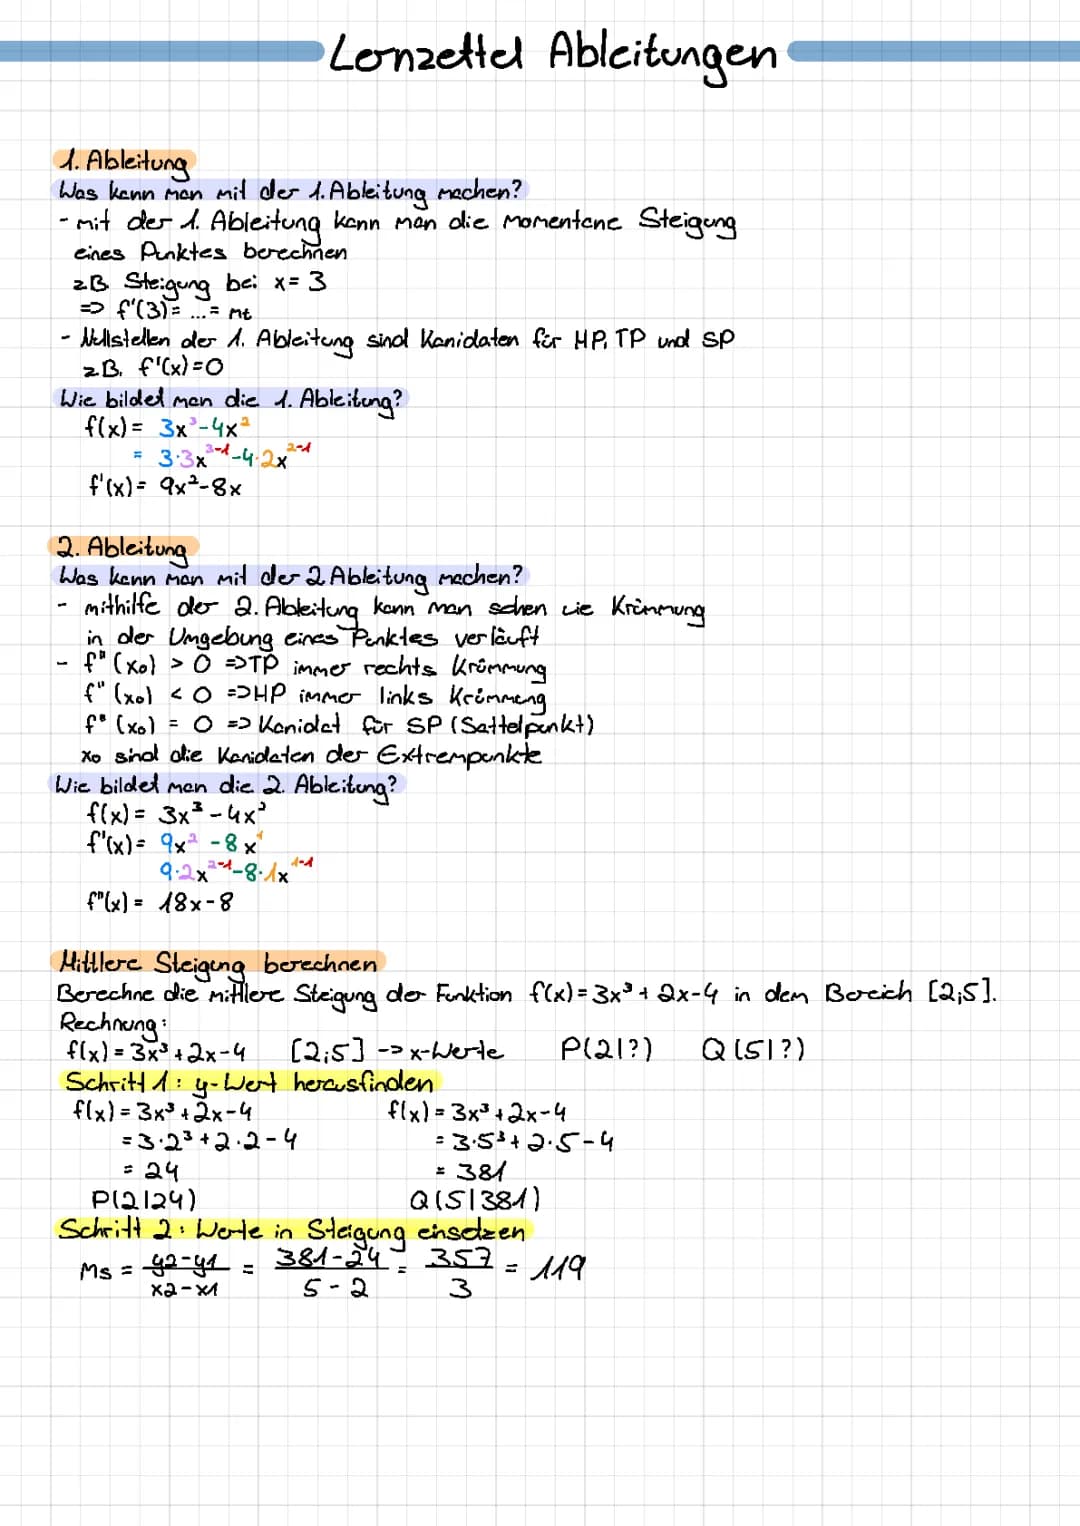 Lernzettel Ableitungen
1. Ableitung
Was kann man mit der 1. Ableitung machen?
- mit der 1. Ableitung kann man die momentane Steigung
eines Punktes berechnen
z.B. Steigung bei x = 3
=> f'(3) = ... = mt
- Nullstellen der 1. Ableitung sind Kanidaten für HP, TP und SP
z.B. f'(x) = 0
Wie bildet man die 1. Ableitung?
f(x) = 3x³ - 4x²
= 3·3x³⁻¹ - 4·2x²⁻¹
f'(x) = 9x² - 8x
2. Ableitung
Was kann man mit der 2. Ableitung machen?
- mithilfe der 2. Ableitung kann man sehen wie Krümmung
in der Umgebung eines Punktes verläuft
- f"(x₀) > 0 => TP immer rechts Krümmung
f"(x₀) < 0 => HP immer links Krümmung
f"(x₀) = 0 => Kanidat für SP (Sattelpunkt)
x₀ sind die Kanidaten der Extrempunkte
Wie bildet man die 2. Ableitung?
f(x) = 3x³ - 4x²
f'(x) = 9x² - 8x¹
9·2x²⁻¹ - 8·1x¹⁻¹
f"(x) = 18x - 8
Mittlere Steigung berechnen
Berechne die mittlere Steigung der Funktion f(x) = 3x³ + 2x - 4 in dem Bereich [2;5].
Rechnung:
f(x) = 3x³ + 2x - 4 [2;5] -> x-Werte P(2|?) Q(5|?)
Schritt 1: y-Wert herausfinden
f(x) = 3x³ + 2x - 4 f(x) = 3x³ + 2x - 4
= 3·2³ + 2·2 - 4 = 3·5³ + 2·5 - 4
= 24 = 381
P(2|24) Q(5|381)
Schritt 2: Werte in Steigung einsetzen
Ms = y2-y1 / x2-x1 = 381-24 / 5-2 = 357 / 3 = 119